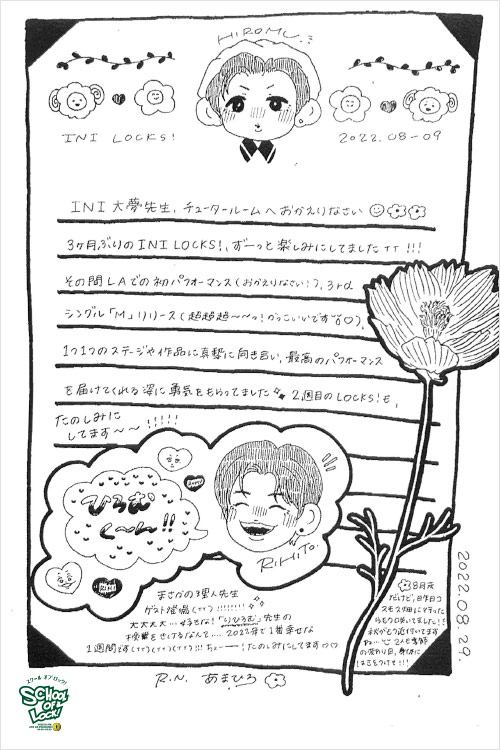 HIROMU
INI LOCKS!
2022.08-09
INI 大夢先生、チュータールームへおかえりなさい
3ヶ月ぶりのINI LOCKS!、ずーっと楽しみにしてましたTT!!!
その間LAでの初パフォーマンス(おかえりなさい!)、3rd
シングル「M」リリース(超超超〜〜っ!かっこいいです♡)、
1つ1つのステージや作品に真摯に向き合い、最高のパフォーマンス
を届けてくれる姿に勇気をもらってました 2週目のLOCKS!も、
たのしみに
してます〜〜!!!!!
ひろむ
く〜ん!!
RIHITO.
まさかの理人先生
ゲスト登場(TT)!!!!!!!!
大大大大...好きな!「りひろむ」先生の
授業をきけるなんて.....2022年で1番幸せな
1週間です(TT)(TT)(TT)!! たのしみにしてます♡♡
8月末
だけど、昨日コ
スモス畑に
2022.08.29.
R.N. あまひろ
スクール オブ ロック!
SCHOOL
OF
LOCK!